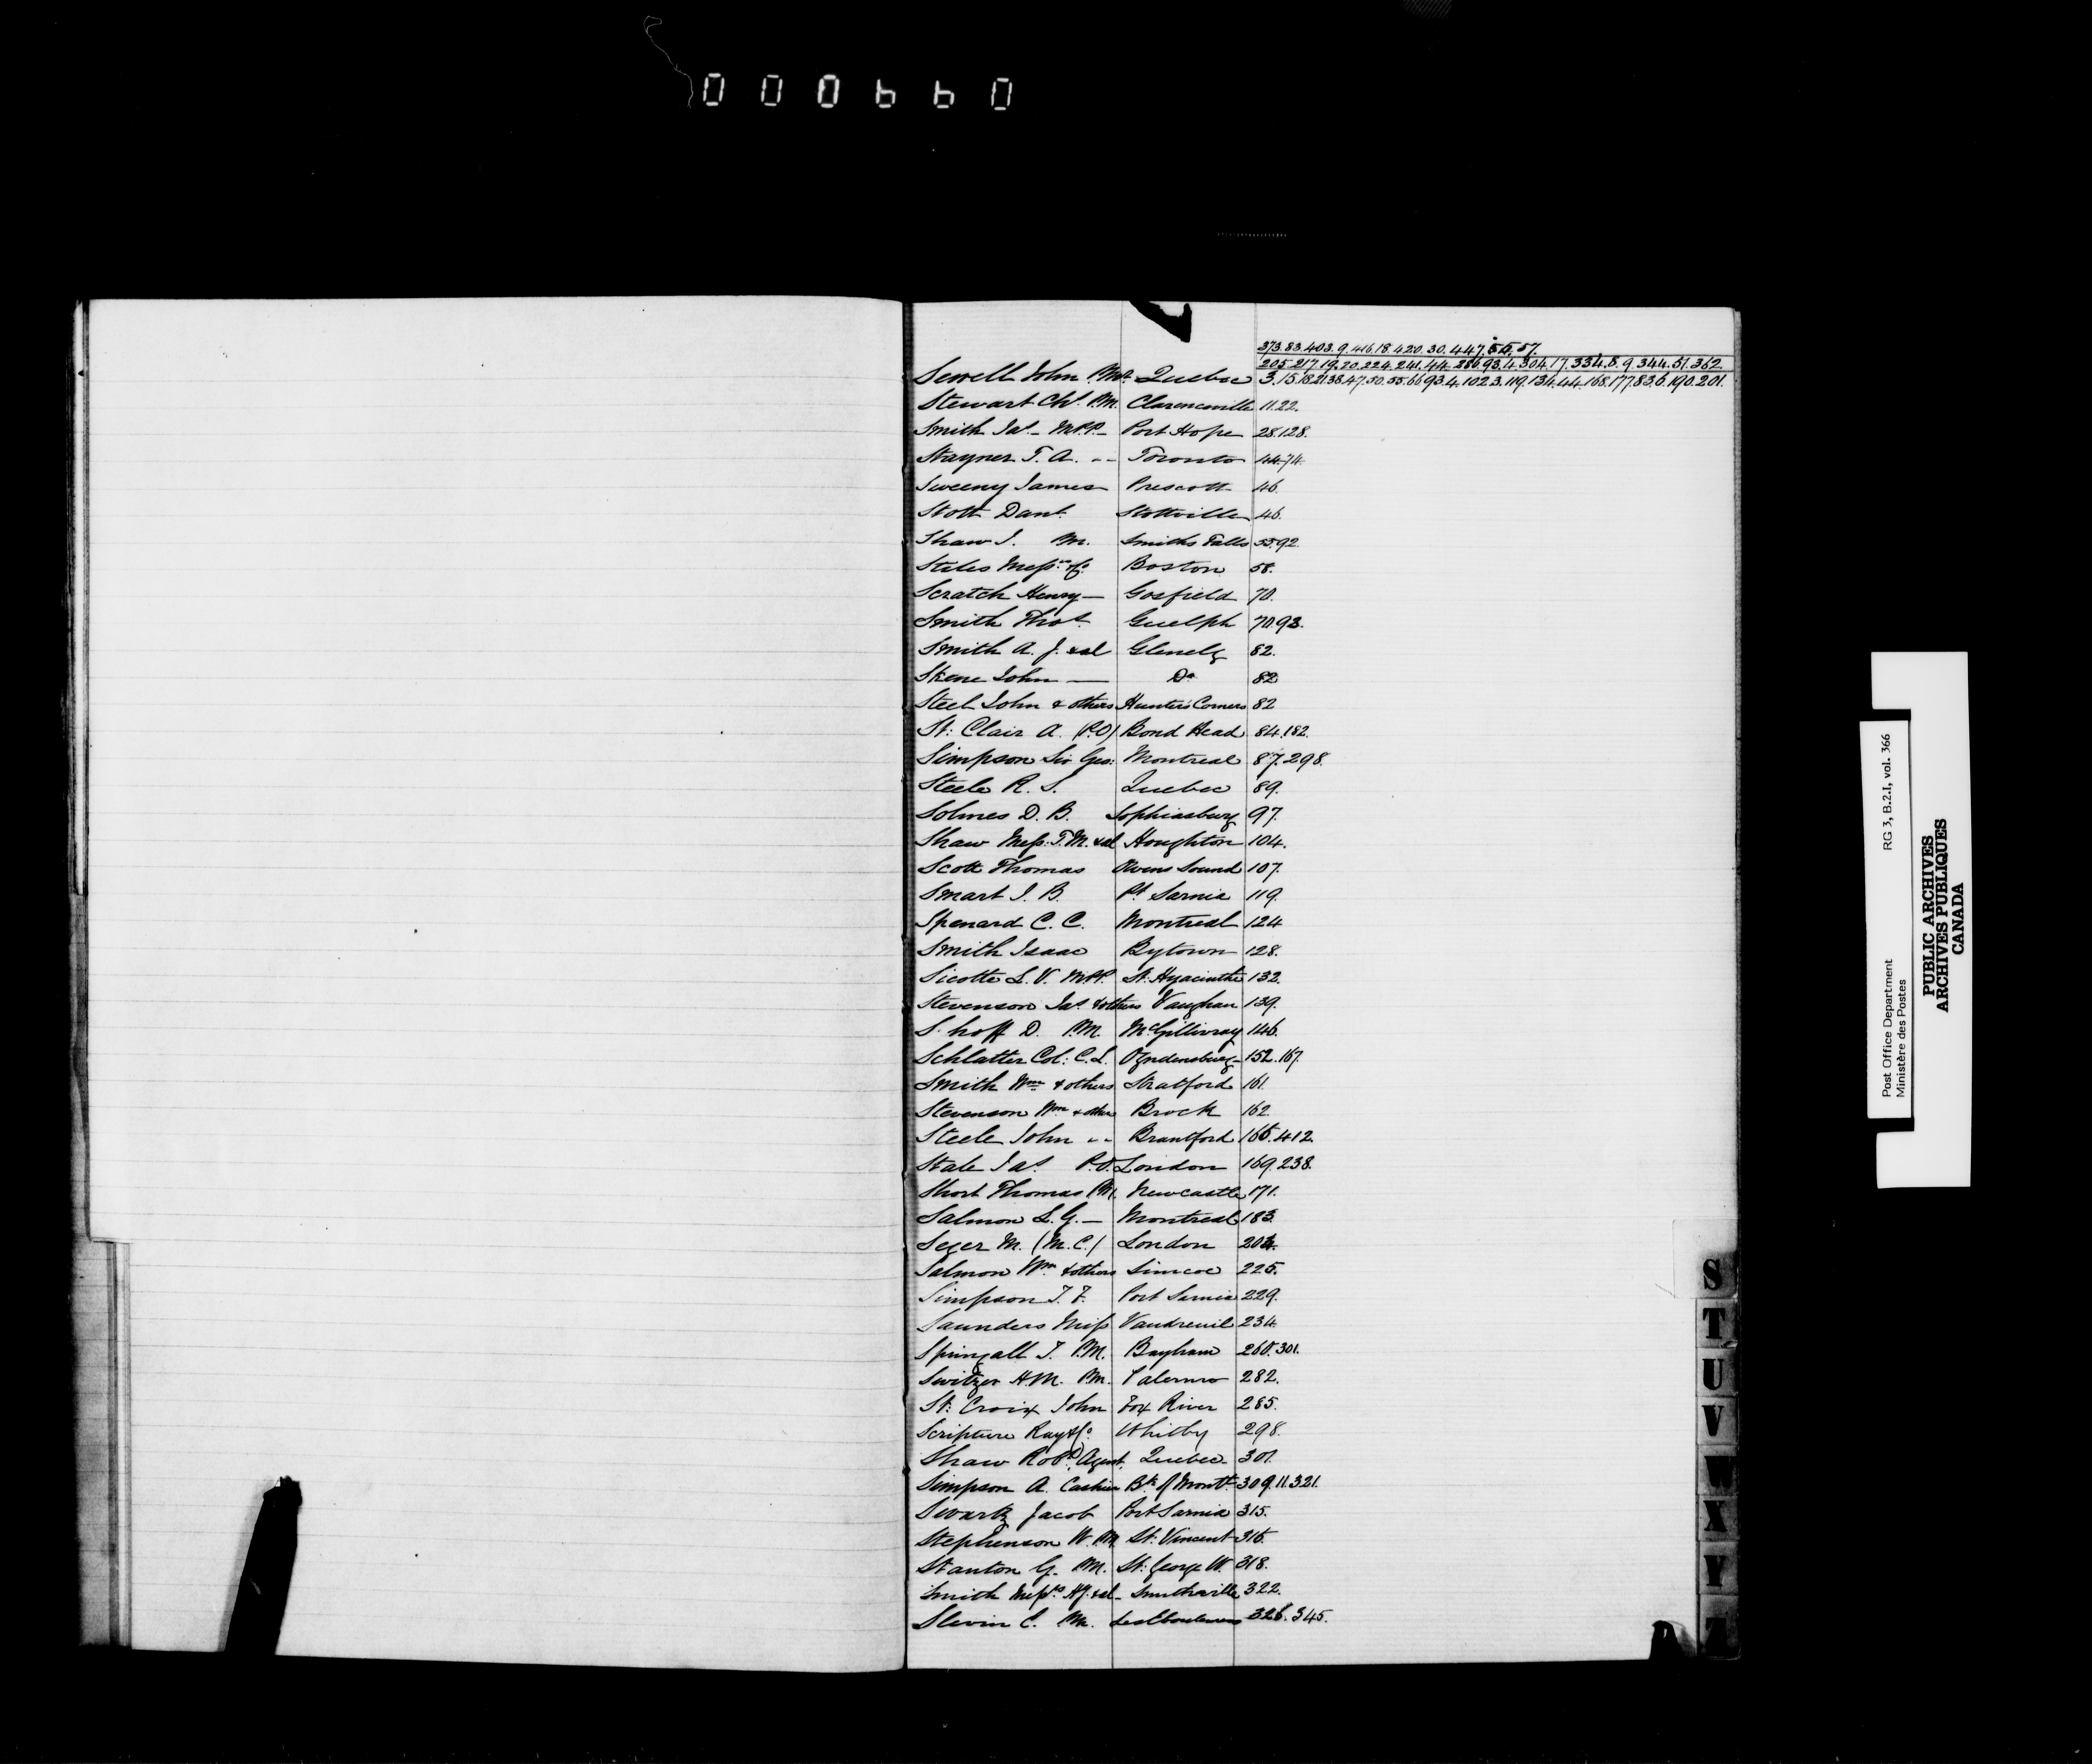 000660
373.83.403.9.416.18.420.30.447.54.57.
205.217.19.20.224.241.44.286.93.4.304.17.334.8.9.344.51.362
Sewell John P.Mr Quebec 3.15.18.21.38.47.50.55.66.93.4.102.3.119.134.44.168.177.83.6.190.201.
Stewart Chs P.M. Clarenceville 11.22.
Smith Jas - M.P.P. - Port Hope 28.128.
Stayner T. A. -- Toronto 44.74.
Sweeny James Prescott 46.
Stott Danl Stottville 46.
Shaw J. P.M. Smiths Falls 55.92
Stiles Messrs & Co Boston 58.
Scratch Henry - Gosfield 70.
Smith Thos Guelph 70.93.
Smith A. J. & al Glenelg 82.
Skene John — Do 82
Steel John & others Hunter's Corners 82
St: Clair A. (P.O) Bond Head 84.182.
Simpson Sir Geo: Montreal 87.298.
Steele R. S. Quebec 89.
Solmes D. B. Sophiasburg 97.
Shaw Mess: T.M. & al Houghton 104.
Scott Thomas Owens Sound 107.
Smart J. B. Pt Sarnia 119.
Spenard C. C. Montreal 124
Smith Isaac Bytown 128.
Sicotte L. V. M.P.P. St. Hyacinthe 132.
Stevenson Jas & others Vaughan 139.
S. hoff D. P.M. McGillivray 146.
Schlatter Col: C. L. Ogdensburg - 152.167.
Smith Wm & others Stratford 161.
Stevenson Wm & others Brock 162.
Steele John -- Brantford 165.412.
Stale Jas P.O. London 169.238.
Short Thomas P.M. Newcastle 171.
Salmon L. G. — Montreal 183.
Seger M. (M.C.) London 204.
Salmon Wm & others Simcoe 225.
Simpson T. F. Port Sarnia 229.
Saunders Miss Vaudreuil 234.
Springall J. P.M. Bayham 260.301.
Switzer H.M. P.M. Palermo 282.
St: Croix John Fox River 285.
Scripture Ray & Co Whitby 298.
Shaw Robt, Agent, Quebec - 301.
Simpson A. Cashier Bk of Montl 309.11.321.
Swartz Jacob Port Sarnia 315.
Stephenson W. P.M. St: Vincent 315.
Stanton G. P.M. St: George W. 318.
Smith Messrs H.J. & al - Smithville 322.
Slevin C. P.M. Les Eboulemens 326.345.
S
T
U
V
W
X
Y
Z
Post Office Department RG 3, B.2.I, vol. 366
Ministère des Postes
PUBLIC ARCHIVES
ARCHIVES PUBLIQUES
CANADA